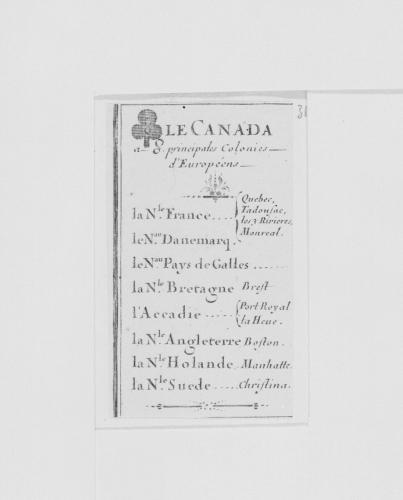 LE CANADA
a 8. principales Colonies
d'Européens
la N.le France.... Quebec,
Tadousac,
les 3 Rivieres,
Monreal.
le N.au Danemarq.
le N.au Pays de Galles ......
la N.le Bretagne Brest
l'Accadie ..... Port Royal
la Heue.
la N.le Angleterre Boston.
la N.le Holande Manhatte.
la N.le Suede ..... Christina.